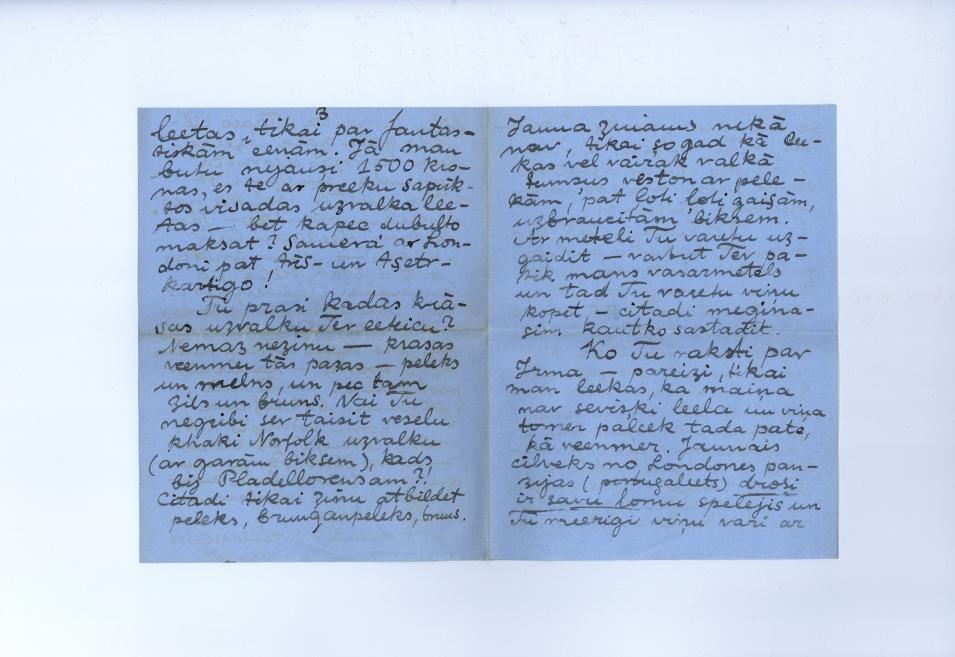 3
leetas, tikai par fantas-
tiskām cenām! Jā man
butu nejauši 1500 kro-
nas, es te ar preeku sapirk-
tos visadas uzvalka lee-
tas — bet kapec dubulto
maksat? Samērā ar Lon-
doni pat, trīs- un tšetr-
kartigo!
Tu prasi kadas krā-
sas uzvalku Tev eeteicu?
Nemaz nezinu — krasas
veenmer tās pašas — peleks
un melns, un pec tam
zils un bruns. Vai Tu
negribi sev taisit veselu
khaki Norfolk uzvalku
(ar garām biksem), kads
bij Pladellorensam?!
Citadi tikai zinu atbildet
peleks, brunganpeleks, bruns.
Jauna zinams nekā
nav, tikai šogad kā lai-
kas vel vairak valkā
tumsus veston ar pele-
kām, pat loti loti gaišām,
uzbraucitām biksem.
Ar meteli Tu varetu uz-
gaidit — varbut Tev pa-
tik mans vasarmetels
un tad Tu varetu viņu
kopet — citadi megina-
sim kautko sastadit.
Ko Tu raksti par
Irma — pareizi, tikai
man leekas, ka maiņa
nav seviški leela un viņa
tomer paleek tada pate,
kā veenmer. Jaunais
cilveks no Londones pan-
zijas (portugaleets) droši
ir savu lomu spelejis un
Tu meerigi viņu vari ar